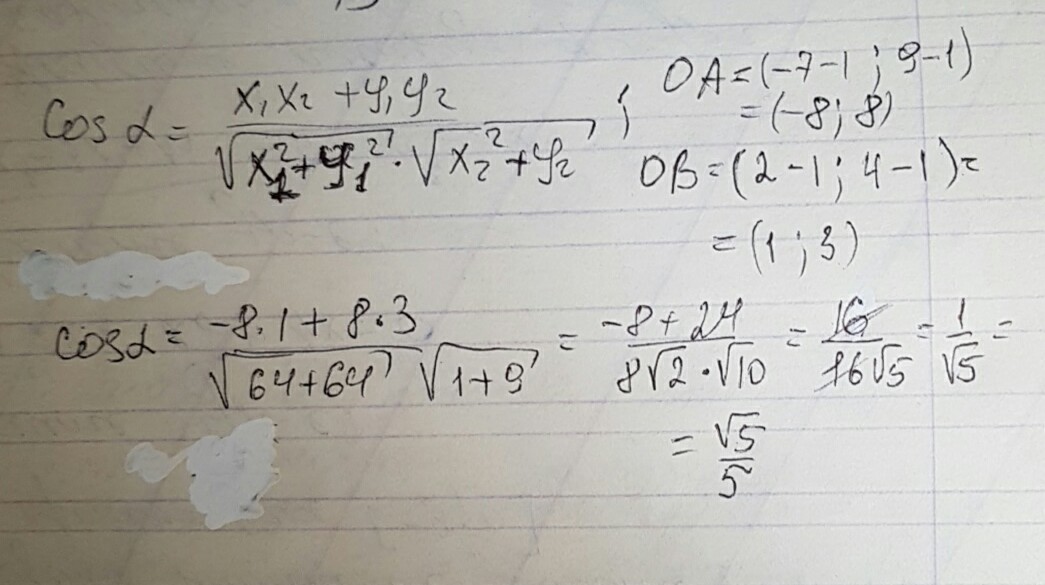 cos α = (x₁x₂ + y₁y₂) / (√(x₁² + y₁²) · √(x₂² + y₂)) ;
OA = (-7-1 ; 9-1)
= (-8 ; 8)
OB = (2-1 ; 4-1) =
= (1 ; 3)
cos α = (-8·1 + 8·3) / (√(64+64) √(1+9)) = (-8+24) / (8√2 · √10) = 16 / (16√5) = 1/√5 =
= √5/5